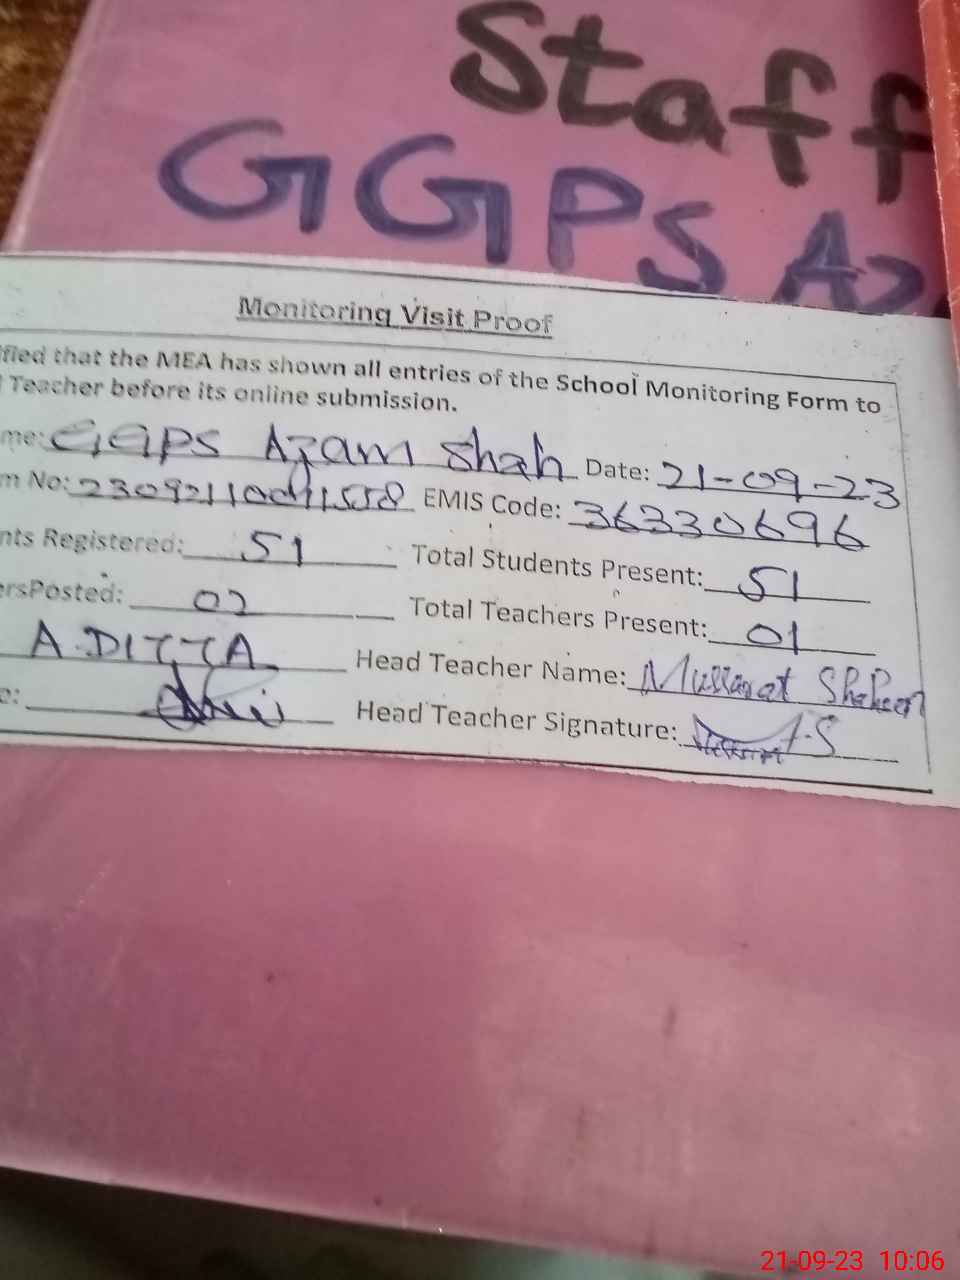 Staff
GGPS Az
Monitoring Visit Proof
ified that the MEA has shown all entries of the School Monitoring Form to
Teacher before its online submission.
me: GGPS Azam Shah Date: 21-09-23
m No: EMIS Code: 36330696
nts Registered: 51 Total Students Present: 51
ersPosted: 02 Total Teachers Present: 01
A.DITTA Head Teacher Name: Mussarat Shaheen
e: Head Teacher Signature:
21-09-23 10:06